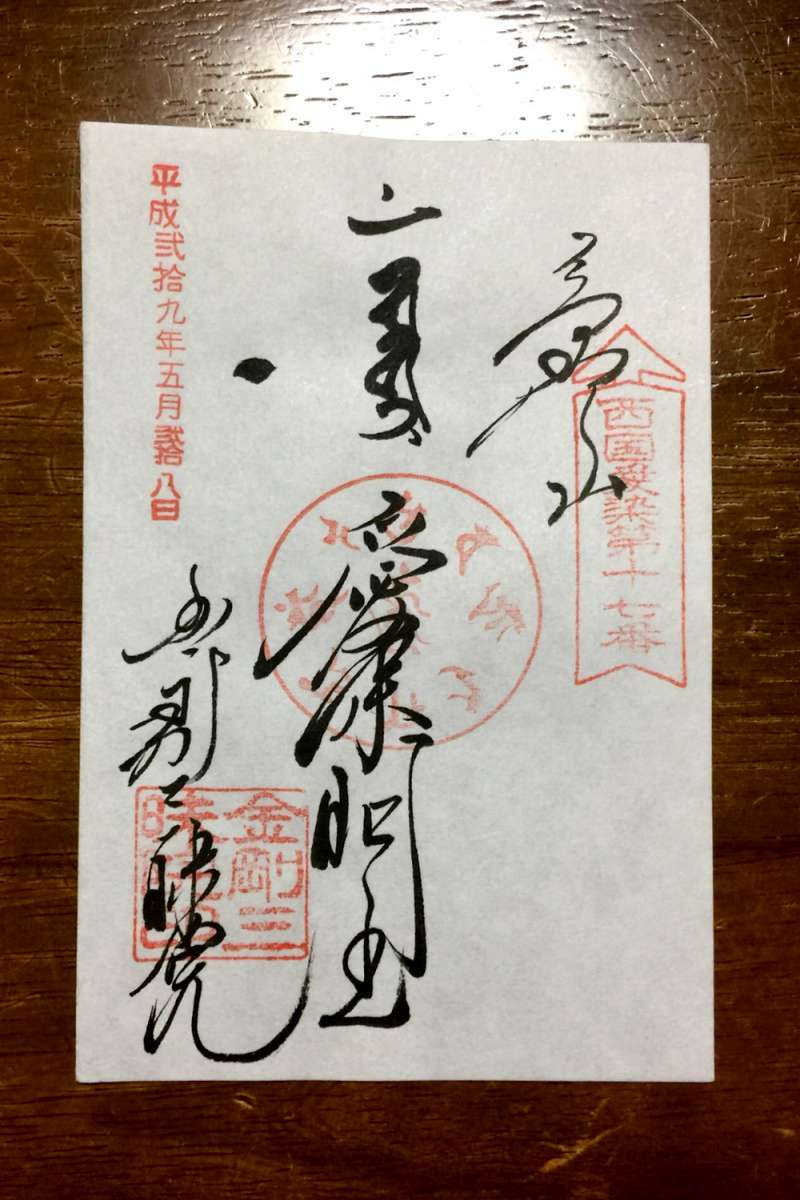 高野山
西国愛染第十七番
愛染明王
金剛三昧院
金剛三
昧院印
平成弐拾九年五月弐拾八日